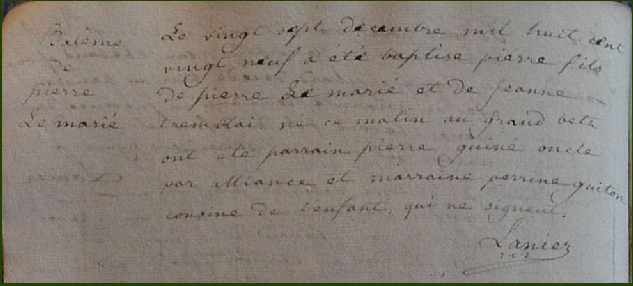 Batême
de
pierre
Le marié
Le vingt sept decembre mil huit cent
vingt neuf a été baptise pierre fils
de pierre Le marié et de jeanne
tremblai né ce matin au grand betz
ont été parrain pierre guiné oncle
par alliance et marraine perrine guiton
cousine de l'enfant, qui ne signent.
Lanier